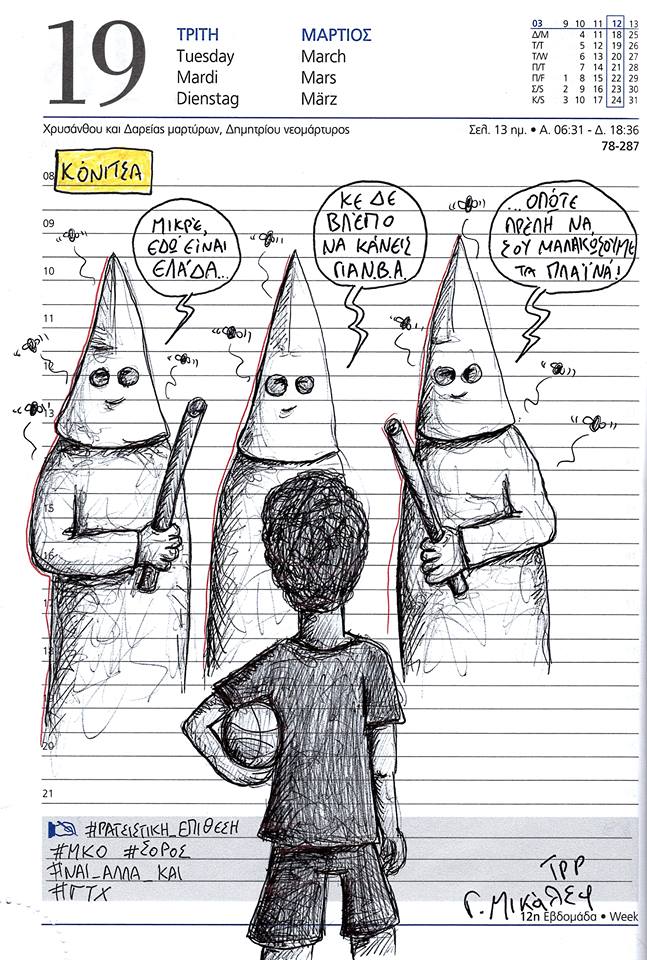 19
ΤΡΙΤΗ ΜΑΡΤΙΟΣ
Tuesday March
Mardi Mars
Dienstag März
03 9 10 11 12 13
Δ/Μ 4 11 18 25
Τ/Τ 5 12 19 26
Τ/W 6 13 20 27
Π/Τ 7 14 21 28
Π/F 1 8 15 22 29
Σ/S 2 9 16 23 30
Κ/S 3 10 17 24 31
Χρυσάνθου και Δαρείας μαρτύρων, Δημητρίου νεομάρτυρος
Σελ. 13 ημ. • Α. 06:31 - Δ. 18:36
78-287
ΚΟΝΙΤΣΑ
ΜΙΚΡΈ,
ΕΔΩ ΕΊΝΑΙ
ΕΛΆΔΑ...
ΚΕ ΔΕ
ΒΛΈΠΟ
ΝΑ ΚΆΝΕΙΣ
ΓΙΑ Ν.Β.Α.
...ΟΠΌΤΕ
ΠΡΈΠΗ ΝΑ
ΣΟΥ ΜΑΛΑΚΌΣΟΥΜΕ
ΤΑ ΠΛΑΪΝΆ!
08
09
10
11
12
13
15
16
17
18
19
20
21
#ΡΑΤΣΙΣΤΙΚΗ_ΕΠΙΘΕΣΗ
#ΜΚΟ #ΣΟΡΟΣ
#ΝΑΙ_ΑΛΛΑ_ΚΑΙ
#ΓΤΧ
ΤΡΡ
Γ. Μικάλεφ
12η Εβδομάδα • Week